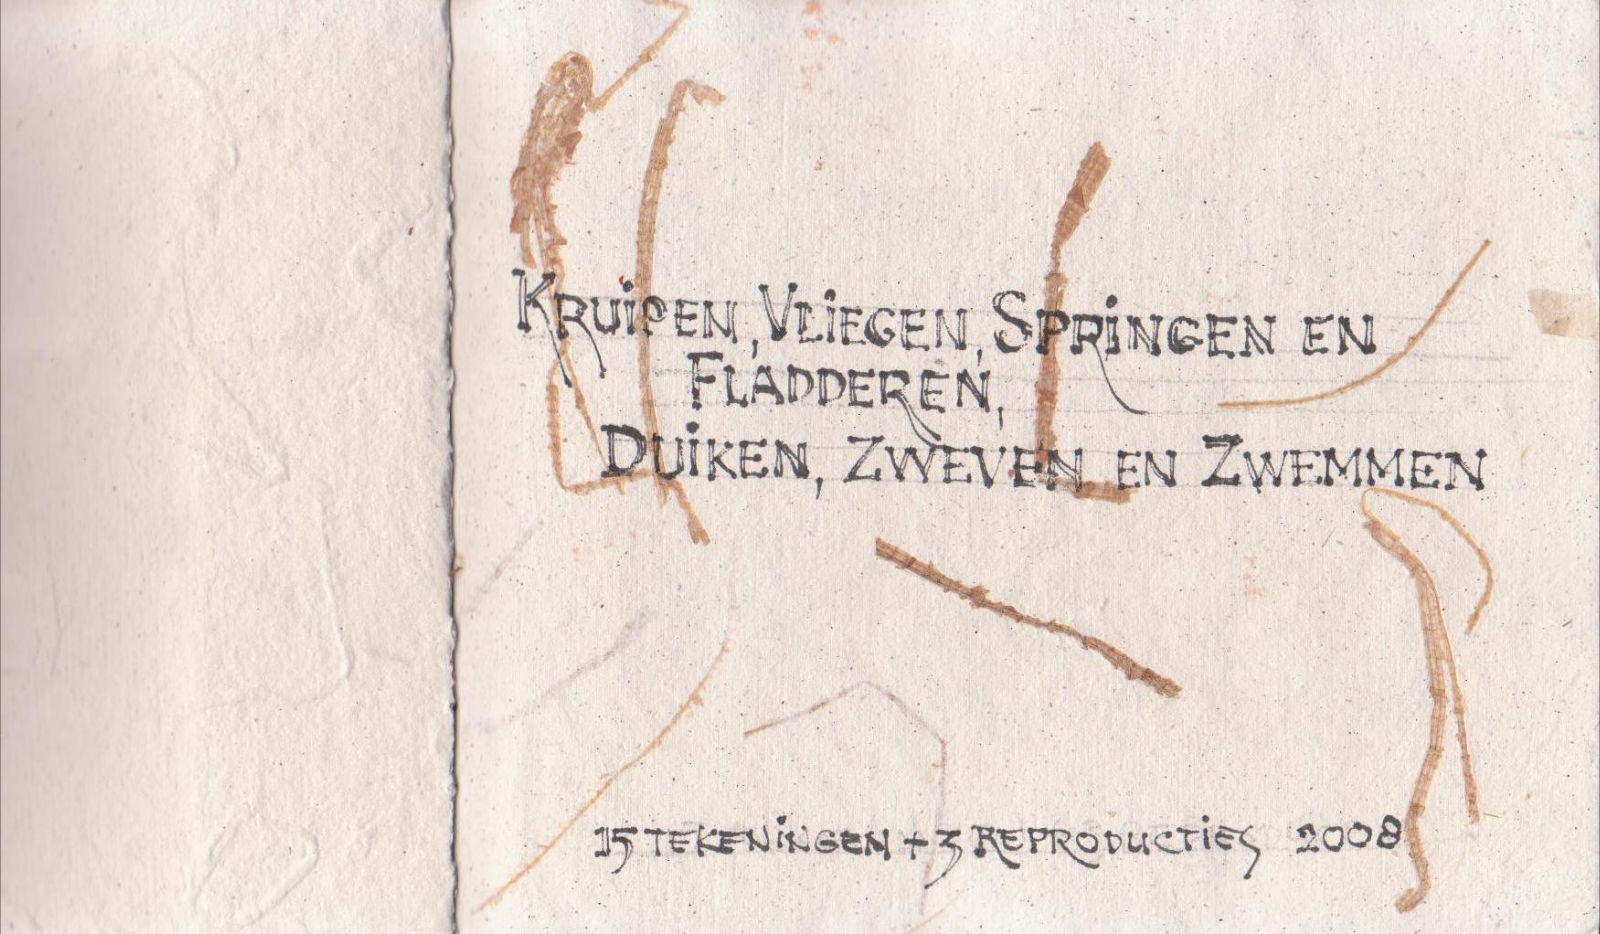 Kruipen, Vliegen, Springen en
Fladderen,
Duiken, Zweven en Zwemmen
15 tekeningen + 3 reproducties 2008